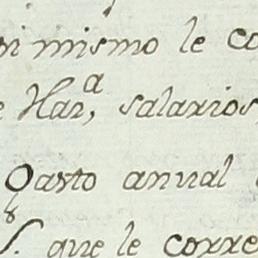 mismo le co
Har.ª, salarios,
Gasto anual
S. que le corre